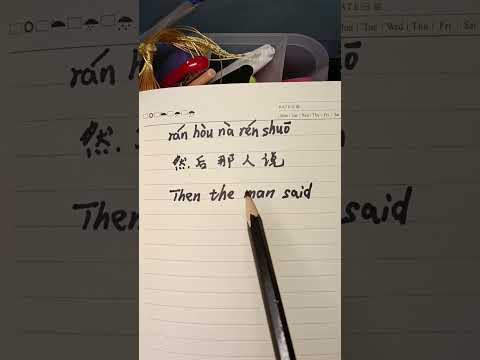 rán hòu nà rén shuō
然后那人说
Then the man said